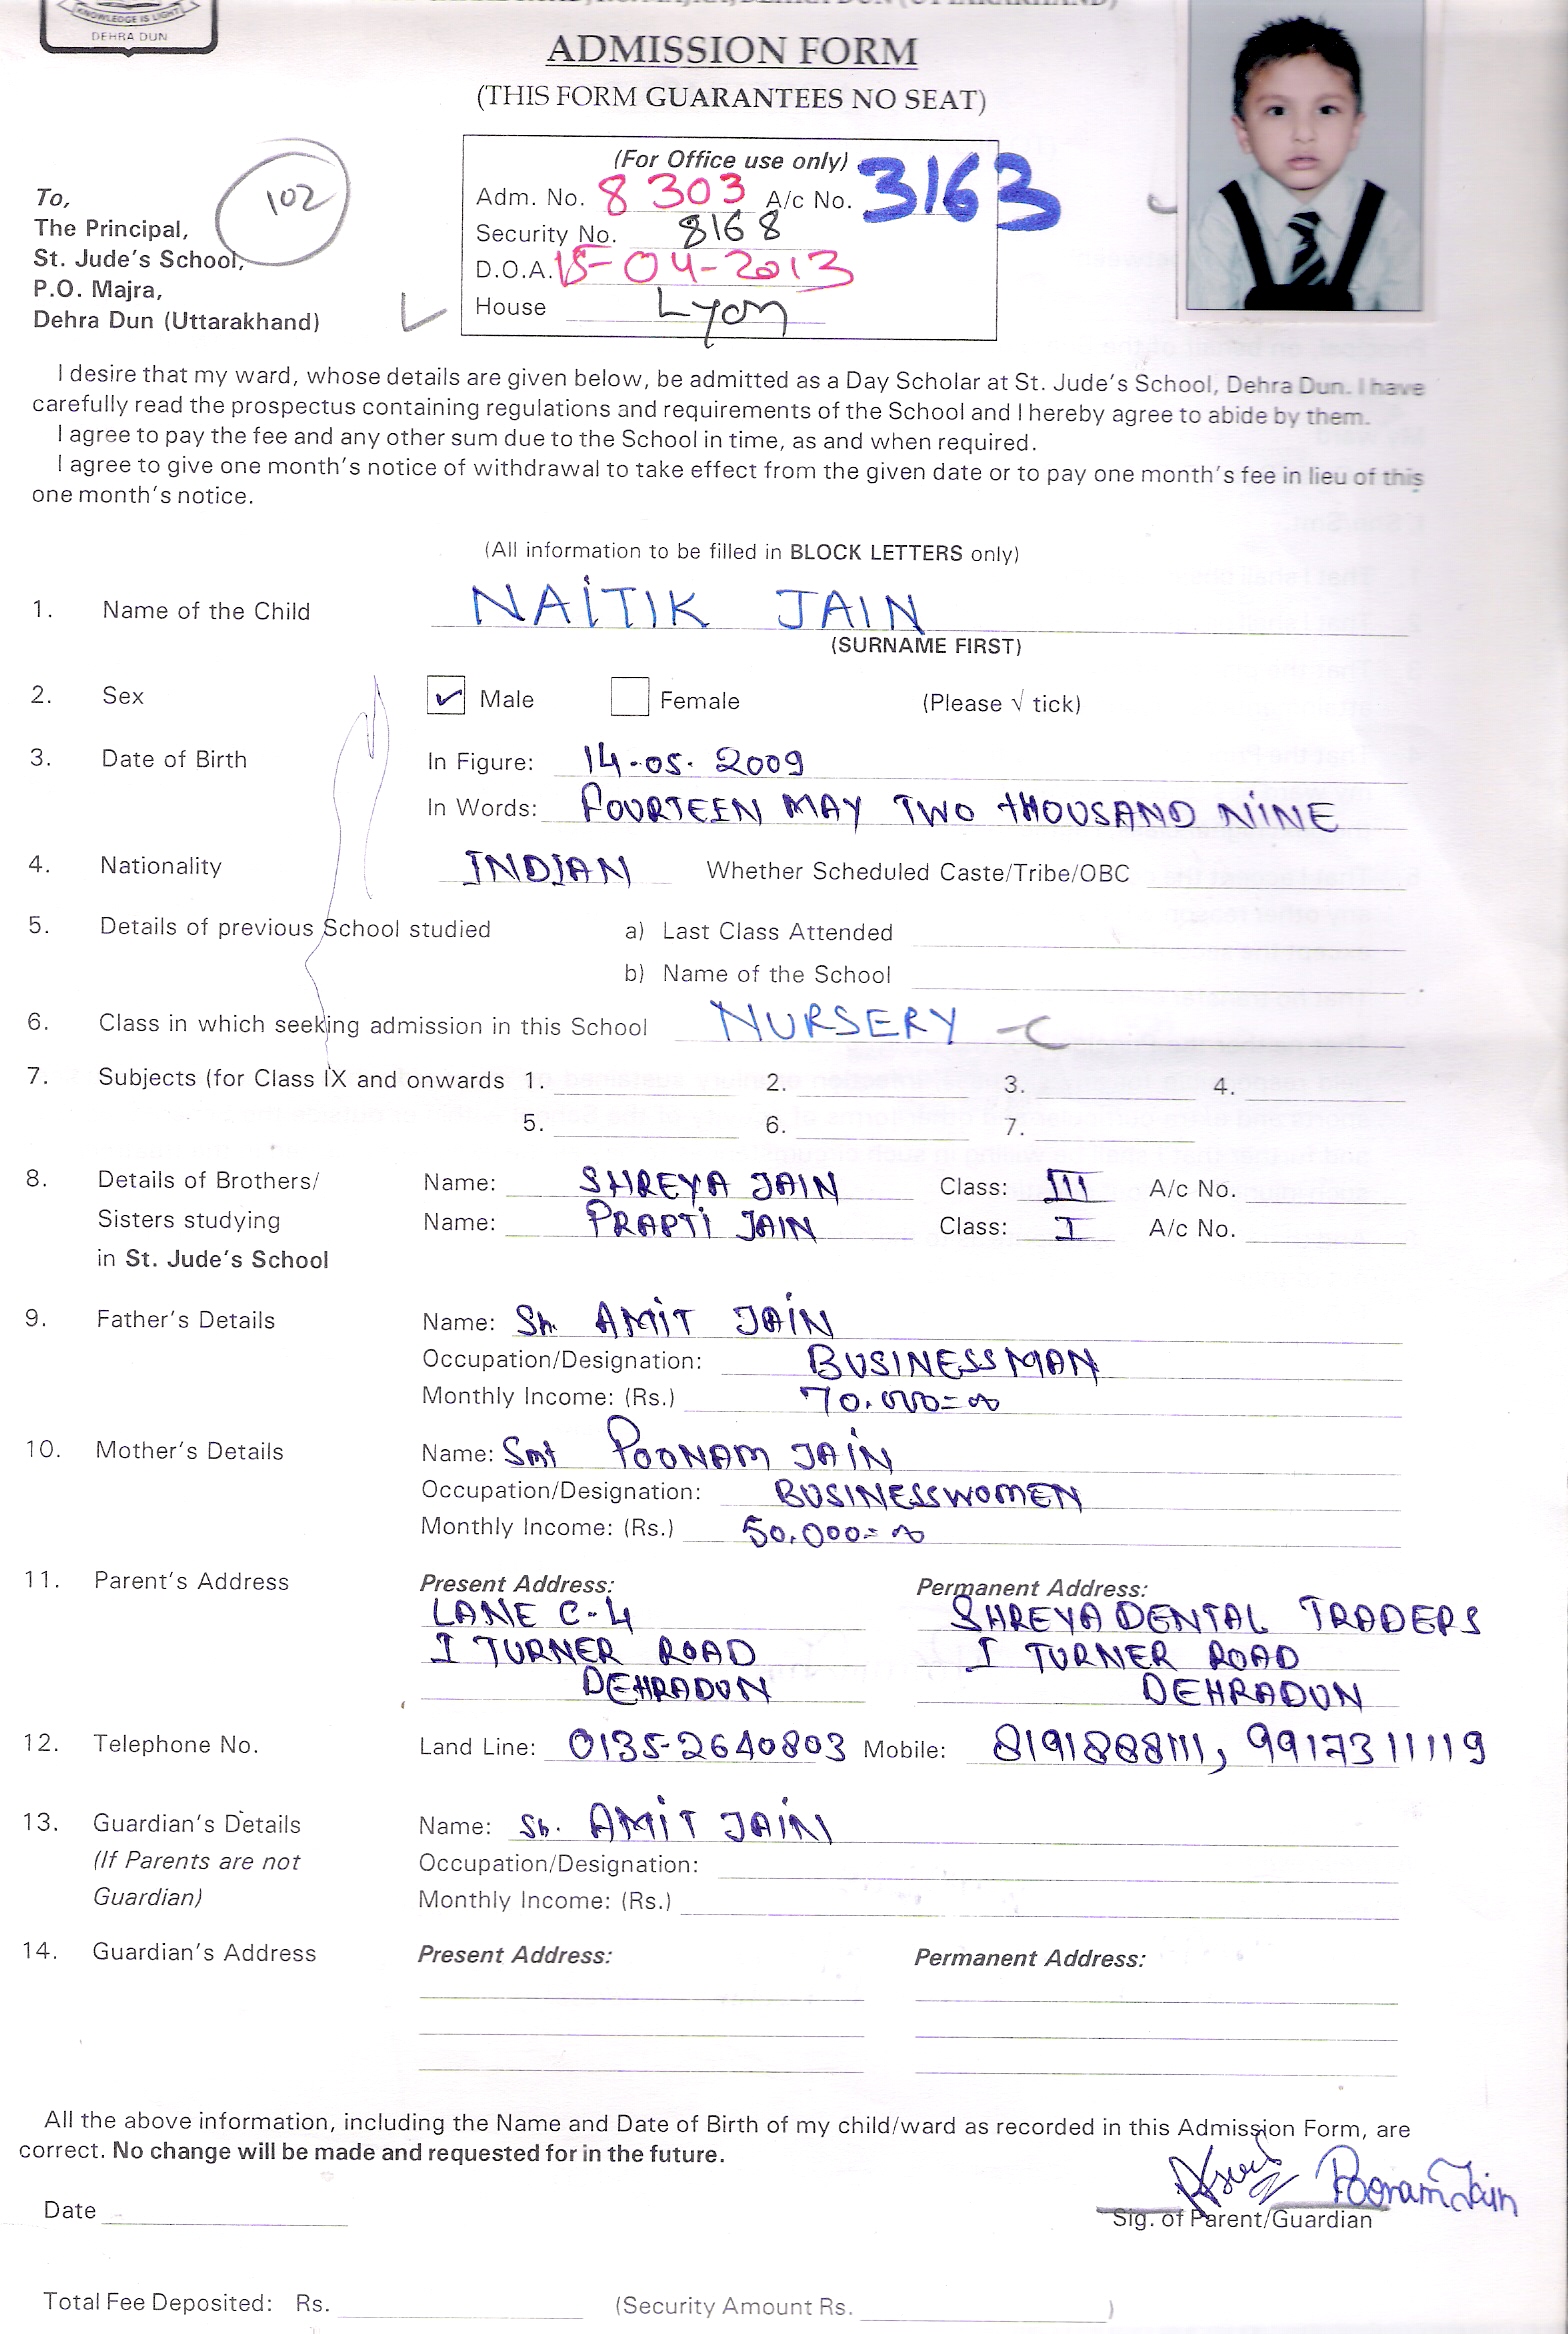 KNOWLEDGE IS LIGHT
DEHRA DUN
ADMISSION FORM
(THIS FORM GUARANTEES NO SEAT)
102
(For Office use only)
Adm. No. 8303 A/c No. 3163
Security No. 8168
D.O.A. 15-04-2013
House Lyon
To,
The Principal,
St. Jude's School,
P.O. Majra,
Dehra Dun (Uttarakhand)
I desire that my ward, whose details are given below, be admitted as a Day Scholar at St. Jude's School, Dehra Dun. I have
carefully read the prospectus containing regulations and requirements of the School and I hereby agree to abide by them.
I agree to pay the fee and any other sum due to the School in time, as and when required.
I agree to give one month's notice of withdrawal to take effect from the given date or to pay one month's fee in lieu of this
one month's notice.
(All information to be filled in BLOCK LETTERS only)
1. Name of the Child NAITIK JAIN
(SURNAME FIRST)
2. Sex ✓ Male Female (Please √ tick)
3. Date of Birth In Figure: 14-05-2009
In Words: FOURTEEN MAY TWO THOUSAND NINE
4. Nationality INDIAN Whether Scheduled Caste/Tribe/OBC
5. Details of previous School studied a) Last Class Attended
b) Name of the School
6. Class in which seeking admission in this School NURSERY - C
7. Subjects (for Class IX and onwards 1. 2. 3. 4.
5. 6. 7.
8. Details of Brothers/ Name: SHREYA JAIN Class: III A/c No.
Sisters studying Name: PRAPTI JAIN Class: I A/c No.
in St. Jude's School
9. Father's Details Name: Sh. AMIT JAIN
Occupation/Designation: BUSINESSMAN
Monthly Income: (Rs.) 70.000=00
10. Mother's Details Name: Smt POONAM JAIN
Occupation/Designation: BUSINESSWOMEN
Monthly Income: (Rs.) 50.000=00
11. Parent's Address Present Address: Permanent Address:
LANE C-4 SHREYA DENTAL TRADERS
I TURNER ROAD I TURNER ROAD
DEHRADUN DEHRADUN
12. Telephone No. Land Line: 0135-2640803 Mobile: 8191888111, 9917311119
13. Guardian's Details Name: Sh. AMIT JAIN
(If Parents are not Occupation/Designation:
Guardian) Monthly Income: (Rs.)
14. Guardian's Address Present Address: Permanent Address:
All the above information, including the Name and Date of Birth of my child/ward as recorded in this Admission Form, are
correct. No change will be made and requested for in the future.
Poonam Jain
Date Sig. of Parent/Guardian
Total Fee Deposited: Rs. (Security Amount Rs. )